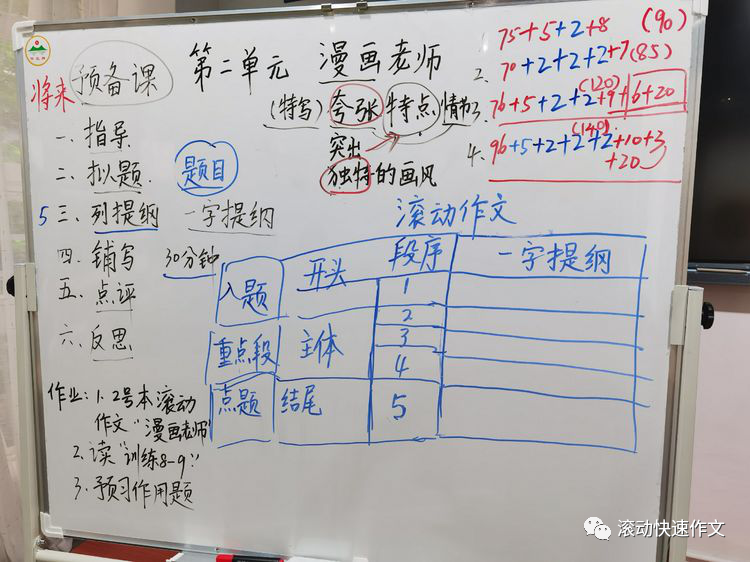 预备课 第二单元 漫画老师
将来
(特写) 夸张 特点 情节
突出
独特的画风
75+5+2+8 (90)
2. 70+2+2+2+7 (85)
3. 76+5+2+2+9+6+20 (120)
4. 96+5+2+2+2+10+3 (140)
+20
一、指导
二、拟题 题目
5 三、列提纲 一字提纲
四、铺写 30分钟
五、点评
六、反思
滚动作文
段序 一字提纲
入题 开头 1
2
重点段 主体 3
4
点题 结尾 5
作业: 1. 2号本滚动
作文“漫画老师”
2. 读“训练8-9”
3. 预习作用题
滚动快速作文